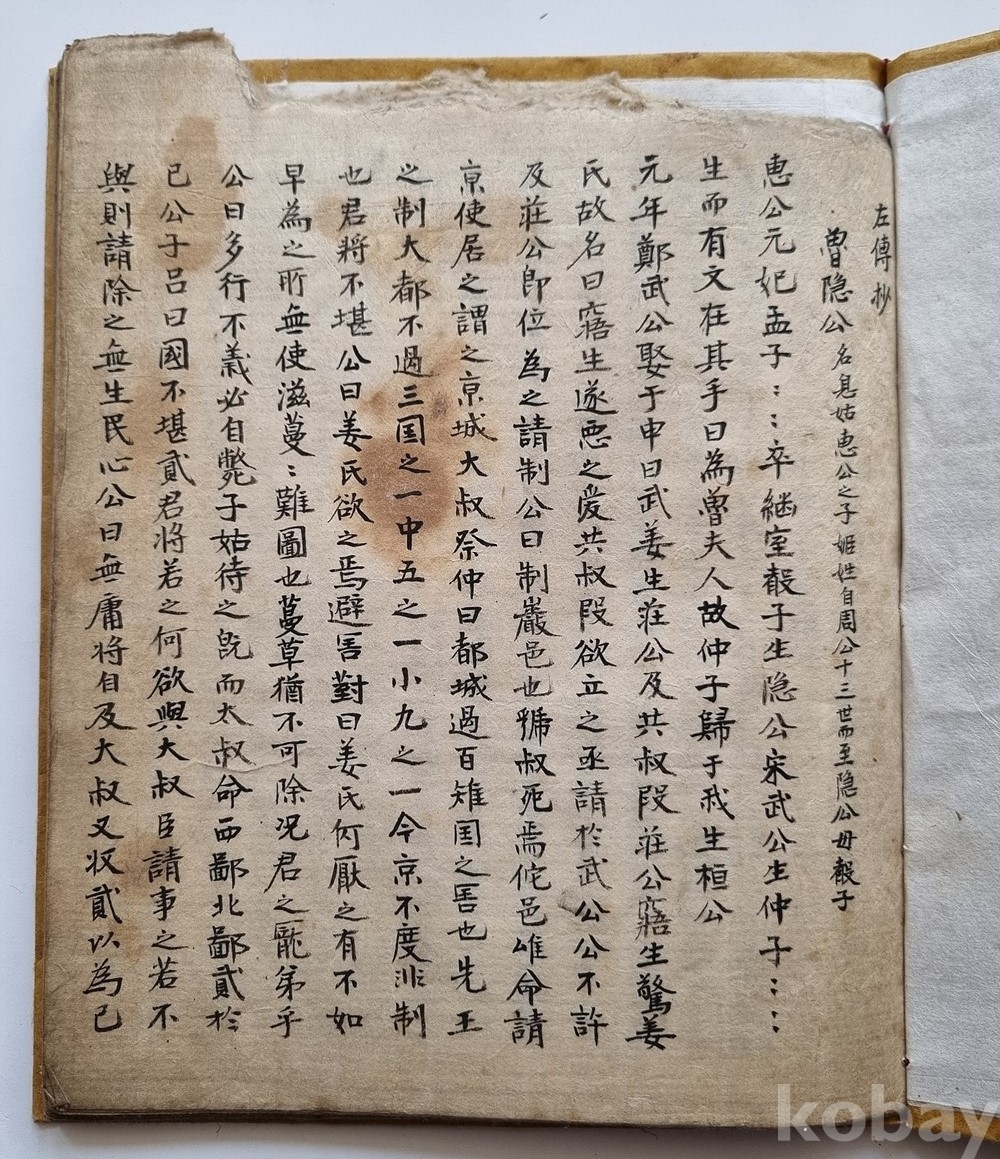 左傳抄
魯隐公 名息姑惠公之子姬姓自周公十三世而至隐公母聲子
惠公元妃孟子〻〻卒継室聲子生隐公宋武公生仲子〻〻
生而有文在其手曰為魯夫人故仲子歸于我生桓公
元年鄭武公娶于申曰武姜生莊公及共叔段莊公寤生驚姜
氏故名曰寤生遂恶之爱共叔段欲立之亟請於武公公不許
及莊公即位為之請制公曰制巖邑也虢叔死焉佗邑唯命請
京使居之謂之京城大叔祭仲曰都城過百雉国之害也先王
之制大都不過三国之一中五之一小九之一今京不度非制
也君將不堪公曰姜氏欲之焉避害對曰姜氏何厭之有不如
早為之所無使滋蔓〻難圖也蔓草猶不可除况君之寵弟乎
公曰多行不義必自斃子姑待之既而太叔命西鄙北鄙貳於
已公子呂曰國不堪貳君将若之何欲與大叔臣請事之若不
與則請除之無生民心公曰無庸将自及大叔又収貳以為已
kobay